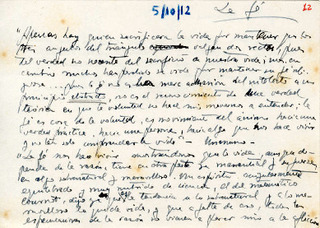 5/10/12 La fé 12
"Apenas hay quien sacrifique la vida por mantener que los
tres ángulos del triángulo valgan dos rectos, pues
tal verdad no necesita del sacrificio de nuestra vida; mas, en
cambio muchos han perdido la vida por mantener su fé
La fé no es mera adhesión del intelecto a un
principio abstracto no es el reconocimiento de una verdad
teórica en que la voluntad no hace sino movernos a entender; la
fé es cosa de la voluntad, es movimiento del ánimo hacia una
verdad práctica, hacia una persona, hacia algo que nos hace vivir
y no tan sólo comprender la vida" - Unamuno -
"La fé nos hace vivir mostrándonos que la vida, aunque de-
penda de la razón, tiene en otra parte su manantial y su fuerza,
en algo sobrenatural y maravilloso. Un espíritu
equilibrado y muy nutrido de ciencia, el del matemático
Cournot, dijo ya que la tendencia a lo sobrenatural y a lo ma-
ravilloso lo que da vida, y que a falta de eso, todas las
especulaciones de la razón no vienen a parar sino a la aflicción